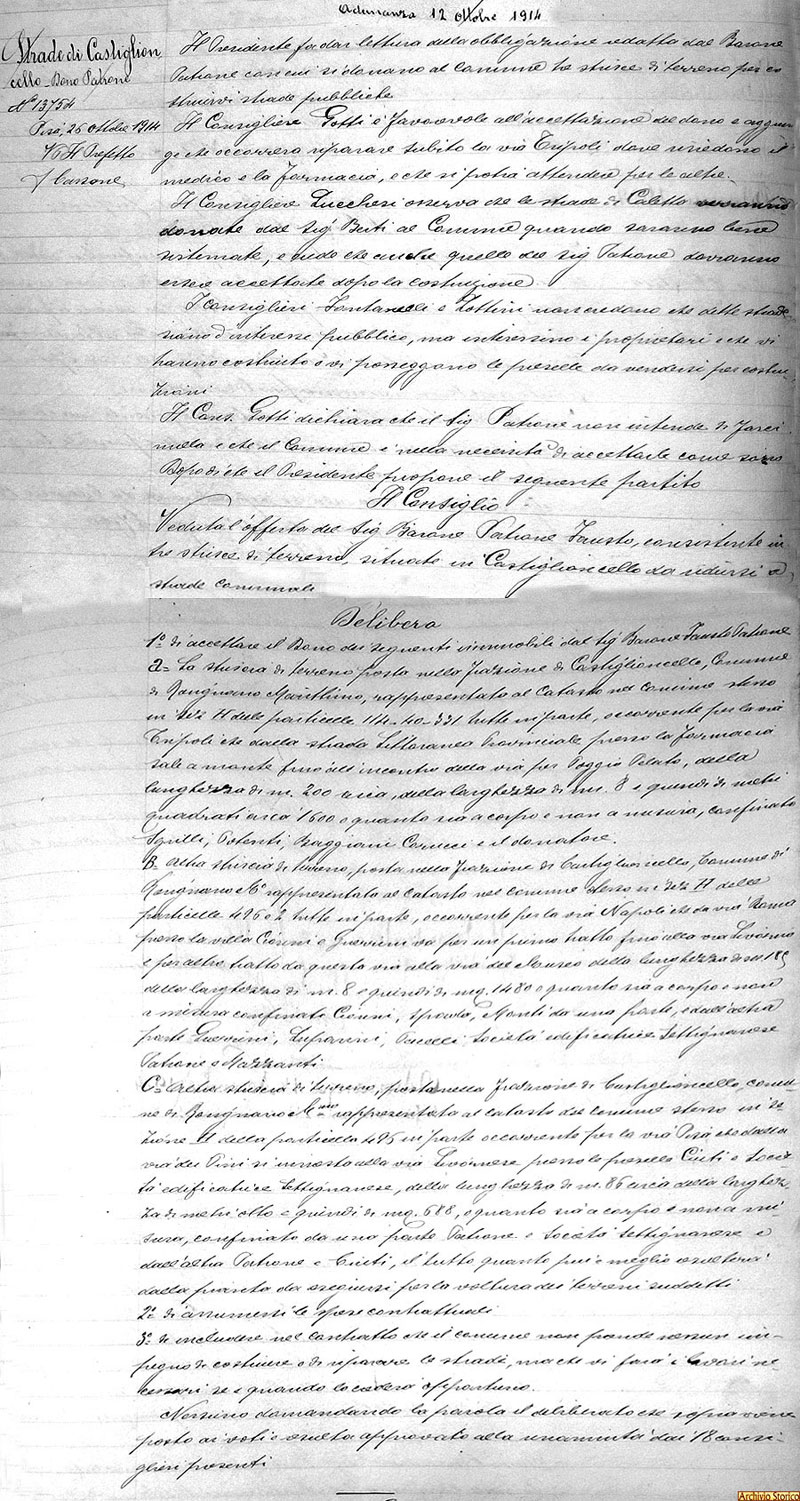 Adunanza 12 Ottobre 1914
Strade di Castiglion
cello - Dono Patrone
N° 13754
Pisa, 26 Ottobre 1914
V° Il Prefetto
f Cassone
Il Presidente fa dar lettura della obbligazione redatta dal Barone
Patrone con cui si donano al Comune tre strisce di terreno per co
struirvi strade pubbliche
Il Consigliere Gotti è favorevole all'accettazione del dono e aggiun
ge che occorrerà riparare subito la via Tripoli dove risiedono il
medico e la farmacia, e che si potrà attendere per le altre.
Il Consigliere Lucchesi osserva che le strade di Caletta verranno
donate dal Sig. Berti al Comune quando saranno bene
sistemate, e crede che anche quelle del Sig Patrone dovranno
essere accettate dopo la costruzione
I consiglieri Fantacelli e Zottini non credono che dette strade
siano d'interesse pubblico, ma interessino i proprietari e che vi
hanno costruito o vi posseggono le preselle da vendersi per costru
zioni
Il Cons. Gotti dichiara che il Sig Patrone non intende di farci
nulla e che il Comune è nella necessità di accettarle come sono
Dopodiché il Presidente propone il seguente partito
Il Consiglio
Veduta l'offerta del Sig Barone Patrone Fausto, consistente in
tre strisce di terreno, situate in Castiglioncello da ridursi a
strade comunali
Delibera
1° di accettare il Dono dei seguenti immobili dal Sig Barone Fausto Patrone
a= La striscia di terreno posta nella frazione di Castiglioncello, Comune
di Rosignano Marittimo, rappresentato al Catasto nel comune stesso
in sez H delle particelle 114-40-331 tutte in parte, occorrente per la via
Tripoli che dalla strada Littoranea Provinciale presso la farmacia
sale a monte fino all'incontro della via per Poggio Pelato, della
lunghezza di m. 200 circa, della larghezza di m. 8 e quindi di metri
quadrati circa 1600 o quanto sia a corpo e non a misura, confinato
Sgrilli, Potenti, Baggiani Carucci e il donatore.
B= Altra striscia di terreno, posta nella frazione di Castiglioncello, Comune di
Rosignano M° rappresentato al catasto nel comune stesso in sez H delle
particelle 496 e 2 tutte in parte, occorrente per la via Napoli che da via Roma
presso la villa Cionni e Guerrini va per un primo tratto fino alla via Livorno
e per altro tratto da questa via alla via del Museo della lunghezza di m 185
della larghezza di m. 8 e quindi di mq. 1480 o quanto sia a corpo e non
a misura confinato Cionni, Spada, Monti da una parte, e dall'altra
parte Guerrini, Luparini, Pacelli, Società edificatrice Settignanese
Patrone e Mazzanti.
C= Altra striscia di terreno, posta nella frazione di Castiglioncello, comu
ne di Rosignano M.mo rappresentata al catasto del comune stesso in se
zione H della particella 495 in parte occorrente per la via Pisa che dalla
via dei Pini si innesta alla via Livornese presso le preselle Ciuti e Socie
tà edificatrice Settignanese, della lunghezza di m. 86 circa della larghez
za di metri otto e quindi di mq. 688, o quanto sia a corpo e non a mi
sura, confinato da una parte Patrone e Società Settignanese e
dall'altra Patrone e Ciuti, il tutto quanto più e meglio risulterà
dalla pianta da eseguirsi per la voltura dei terreni suddetti
2° di assumersi le spese contrattuali
3° di includere nel contratto che il comune non prende nessun im-
pegno di costruire o di riparare le strade, ma che vi farà i lavori ne
cessari se e quando lo crederà opportuno.
Nessuno domandando la parola il deliberato che sopra viene
posto ai voti e risulta approvato alla unanimità dai 18 consi
glieri presenti
Archivio Storico